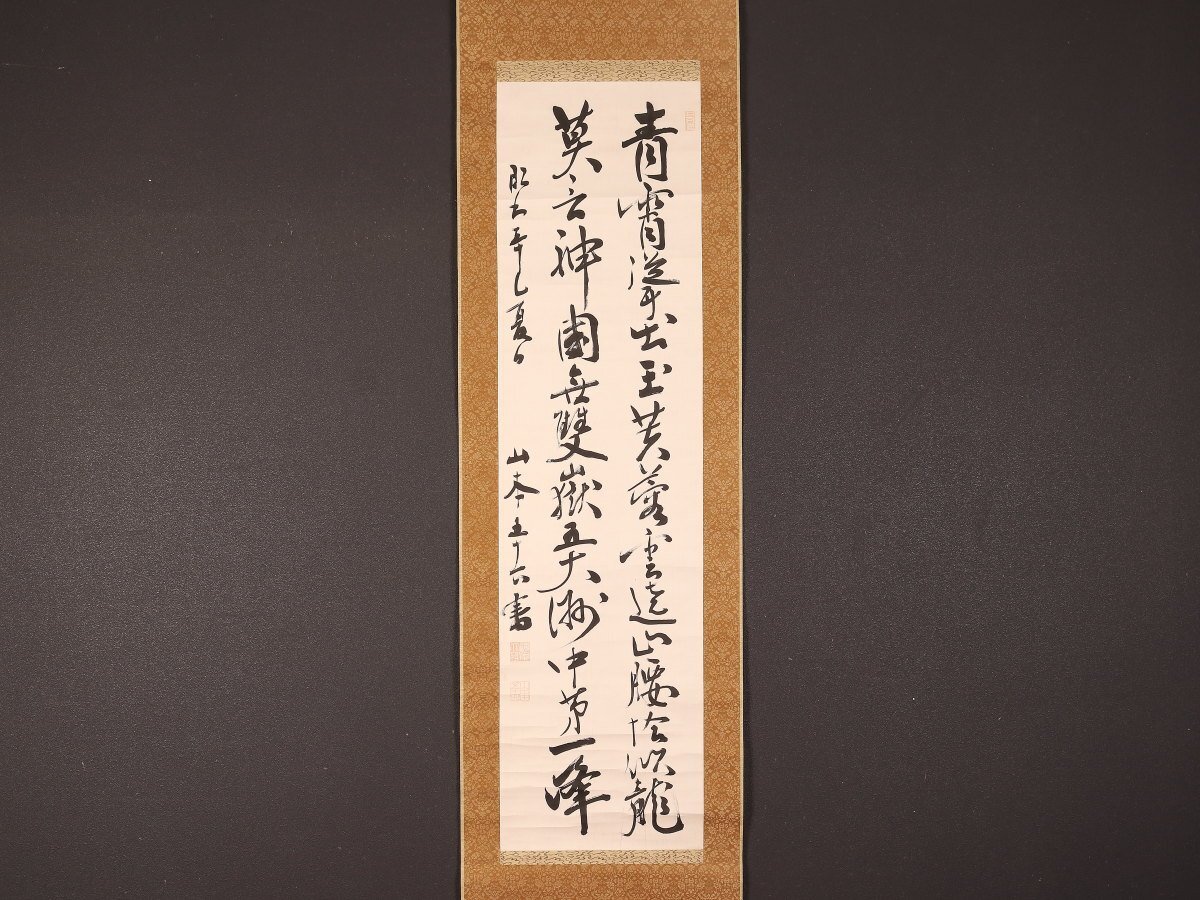 青霄聳出玉芙蓉雲遶山腰恰似龍
莫言神國無雙嶽五大洲中第一峰
昭和辛巳夏日 山本五十六書